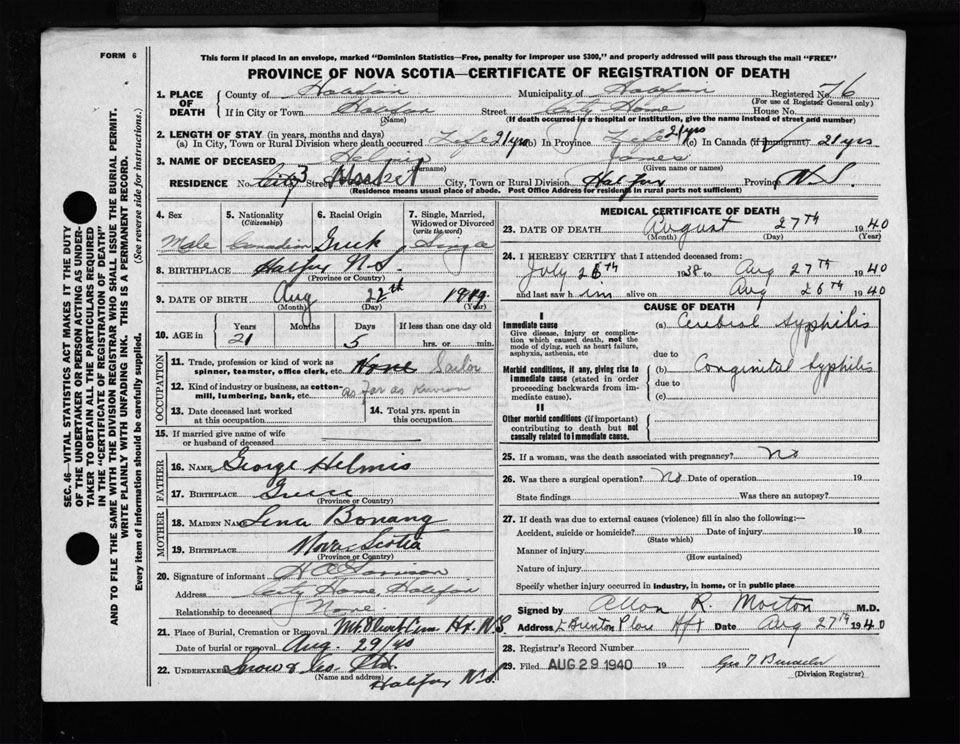 FORM 6
This form if placed in an envelope, marked "Dominion Statistics—Free, penalty for improper use $300," and properly addressed will pass through the mail "FREE"
PROVINCE OF NOVA SCOTIA—CERTIFICATE OF REGISTRATION OF DEATH
1. PLACE OF DEATH County of Halifax Municipality of Halifax Registered No. 76
(For use of Registrar General only)
If in City or Town Halifax Street City Home House No.
(Name) (If death occurred in a hospital or institution, give the name instead of street and number)
2. LENGTH OF STAY (in years, months and days)
(a) In City, Town or Rural Division where death occurred Life 21 yrs (b) In Province Life 21 yrs (c) In Canada (if immigrant) 21 yrs
3. NAME OF DECEASED Helmis James
(Surname) (Given name or names)
RESIDENCE No. 3 Street City, Town or Rural Division Halifax Province N.S.
(Residence means usual place of abode. Post Office Address for residents in rural parts not sufficient)
4. Sex Male
5. Nationality (Citizenship) Canadian
6. Racial Origin Greek
7. Single, Married, Widowed or Divorced (write the word) Single
8. BIRTHPLACE Halifax N.S.
(Province or Country)
9. DATE OF BIRTH Aug 22th 1919
(Month) (Day) (Year)
10. AGE in Years 21 Months Days 5 If less than one day old hrs. or min.
OCCUPATION
11. Trade, profession or kind of work as spinner, teamster, office clerk, etc. None Sailor
12. Kind of industry or business, as cotton-mill, lumbering, bank, etc. as far as known
13. Date deceased last worked at this occupation
14. Total yrs. spent in this occupation
15. If married give name of wife or husband of deceased
FATHER
16. NAME George Helmis
17. BIRTHPLACE Greece
(Province or Country)
MOTHER
18. MAIDEN NAME Lena Bonang
19. BIRTHPLACE Nova Scotia
(Province or Country)
20. Signature of informant
Address City Home, Halifax
Relationship to deceased None.
21. Place of Burial, Cremation or Removal Mt. Olivet Cem Hx. N.S.
Date of burial or removal Aug. 29/40
22. UNDERTAKER Snow & Co. Ltd.
(Name and address)
Halifax N.S.
MEDICAL CERTIFICATE OF DEATH
23. DATE OF DEATH August 27th 1940
(Month) (Day) (Year)
24. I HEREBY CERTIFY that I attended deceased from:
July 26th 1938 to Aug 27th 1940
and last saw him alive on Aug 26th 1940
CAUSE OF DEATH
I
Immediate cause (a) Cerebral syphilis
Give disease, injury or complication which caused death, not the mode of dying, such as heart failure, asphyxia, asthenia, etc
due to
Morbid conditions, if any, giving rise to immediate cause (stated in order proceeding backwards from immediate cause).
(b) Conginital syphilis
due to
(c)
II
Other morbid conditions (if important) contributing to death but not causally related to immediate cause.
25. If a woman, was the death associated with pregnancy? No
26. Was there a surgical operation? No Date of operation 19
State findings Was there an autopsy?
27. If death was due to external causes (violence) fill in also the following:—
Accident, suicide or homicide? Date of injury 19
(State which)
Manner of injury
(How sustained)
Nature of injury
Specify whether injury occurred in industry, in home, or in public place
Signed by Allan R. Morton M.D.
Address Brenton Place Hfx Date Aug 27th 1940
28. Registrar's Record Number
29. Filed AUG 29 1940 19
(Division Registrar)
SEC. 46—VITAL STATISTICS ACT MAKES IT THE DUTY
OF THE UNDERTAKER OR PERSON ACTING AS UNDER-
TAKER TO OBTAIN ALL THE PARTICULARS REQUIRED
IN THE "CERTIFICATE OF REGISTRATION OF DEATH"
AND TO FILE THE SAME WITH THE DIVISION REGISTRAR WHO SHALL ISSUE THE BURIAL PERMIT.
WRITE PLAINLY WITH UNFADING INK. THIS IS A PERMANENT RECORD.
Every item of information should be carefully supplied. (See reverse side for instructions.)